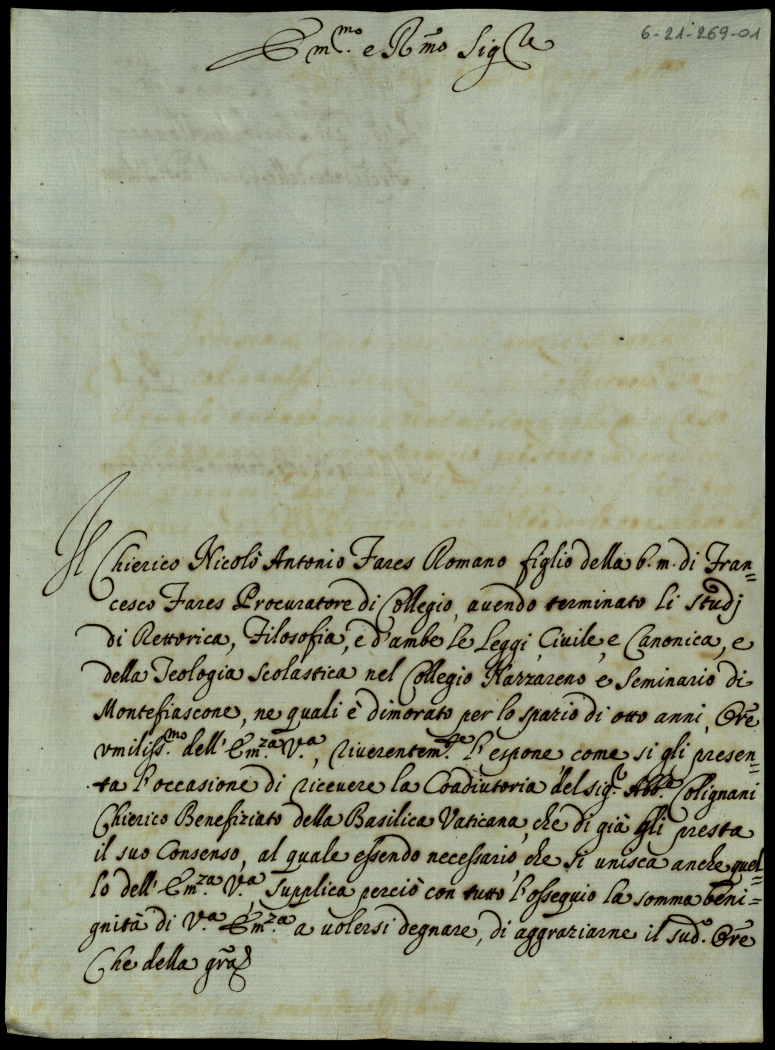 6-21-269-01
Em.mo e R͞mo Sig.re
Il Chierico Nicolò Antonio Fares Romano figlio della b. m. di Fran=
cesco Fares Procuratore di Collegio, avendo terminato li studj
di Rettorica, Filosofia, e d'ambe le Leggi, Civile, e Canonica, e
della Teologia Scolastica nel Collegio Nazzareno e Seminario di
Montefiascone, ne quali è dimorato per lo spazio di otto anni, Or͞e
vmiliss.mo dell'Em.za V.a, riverentem.te l'espone, come si gli presen=
ta l'occasione di ricevere la Coadiutoria del sig.r Abb.e Colignani
Chierico Benefiziato della Basilica Vaticana, che di già gli presta
il suo Consenso, al quale essendo necessario, che si unisca anche quel=
lo dell'Em.za V.a, supplica perciò con tutto l'ossequio la somma beni=
gnità di V.a Em.za a volersi degnare, di aggraziarne il sud.o Or͞e
Che della gr͞a